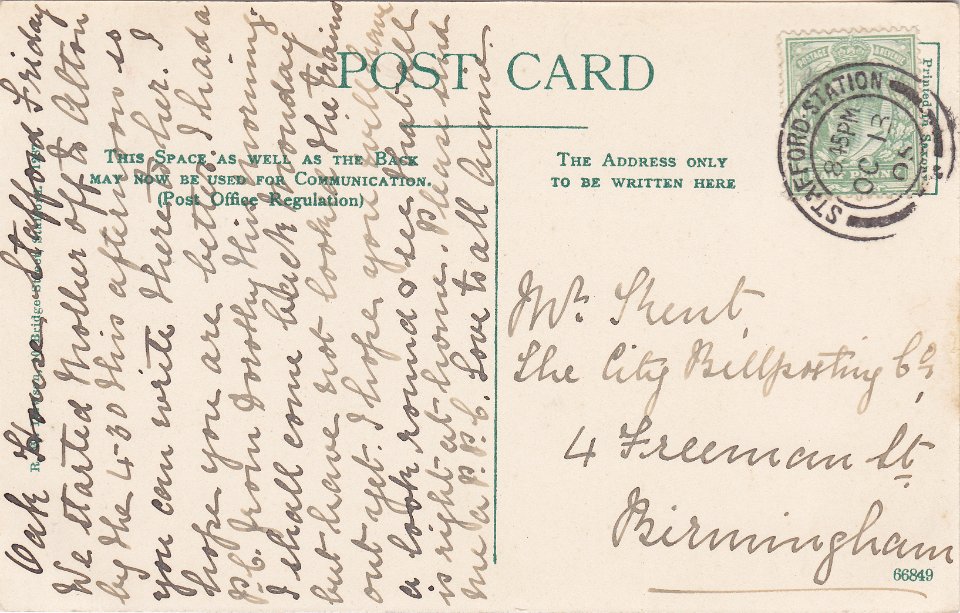 POST CARD
THIS SPACE AS WELL AS THE BACK
MAY NOW BE USED FOR COMMUNICATION.
(Post Office Regulation)
THE ADDRESS ONLY
TO BE WRITTEN HERE
Oak House, Stafford Friday
We started Mother off to Alton
by the 4-30 this afternoon so
you can write there to her. I
hope you are better. I had a
P.C. from Dorothy this morning.
I shall come back Monday
but have not looked the trains
out yet. I hope you will have
a look round & see that all
is right at home. Please send
me a P.P.C. Love to all Annie.
Mr. Skent,
The City Billposting Co.
4 Freeman St
Birmingham
STAFFORD STATION
8 45 PM
OC 13
POSTAGE & REVENUE
Printed in Saxony
Bridge Street, Stafford.
66849